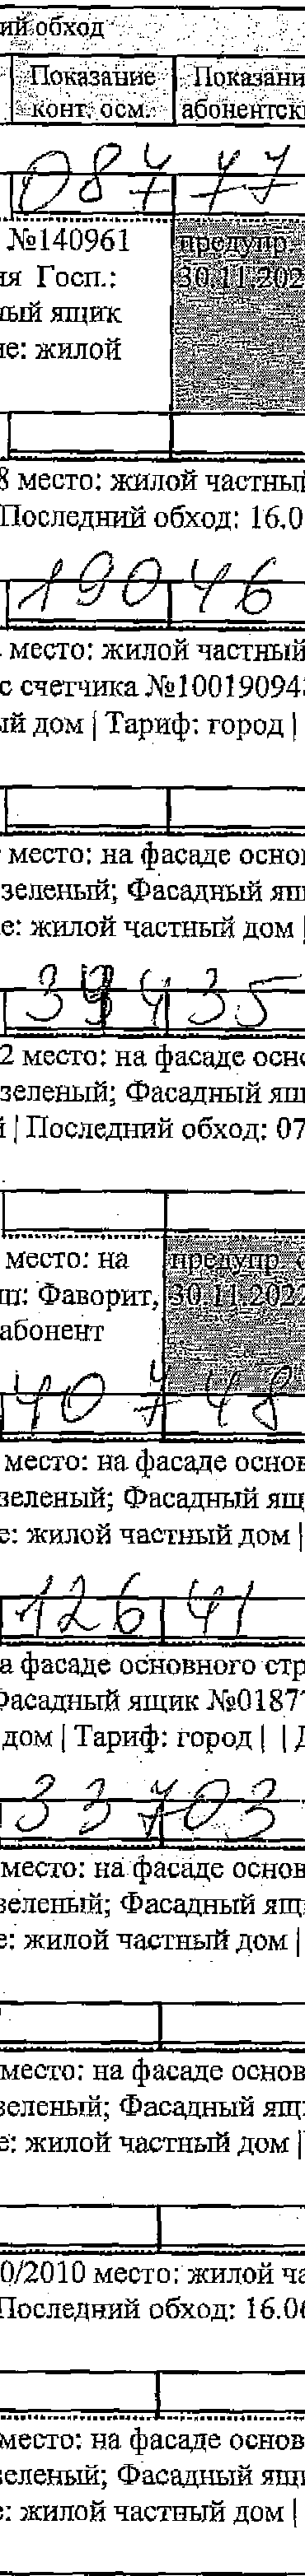 ий обход
Показание Показани
конт. осм. абонентск
08477
№140961 предупр.
ия Госп.: 30.11.202
ный ящик
ие: жилой
8 место: жилой частный
Последний обход: 16.0
19046
место: жилой частный
с счетчика №10019094
ый дом | Тариф: город |
место: на фасаде осно
зеленый; Фасадный ящ
е: жилой частный дом |
435
2 место: на фасаде осн
зеленый; Фасадный ящ
й | Последний обход: 07
место: на предупр.
ш: Фаворит, 30.11.2022
абонент
40748
место: на фасаде основ
зеленый; Фасадный ящ
е: жилой частный дом |
12641
а фасаде основного стр
Фасадный ящик №0187
дом | Тариф: город | | Д
33703
место: на фасаде основ
зеленый; Фасадный ящ
е: жилой частный дом |
место: на фасаде основ
зеленый; Фасадный ящ
е: жилой частный дом |
0/2010 место: жилой ча
Последний обход: 16.06
место: на фасаде основ
зеленый; Фасадный ящ
е: жилой частный дом |